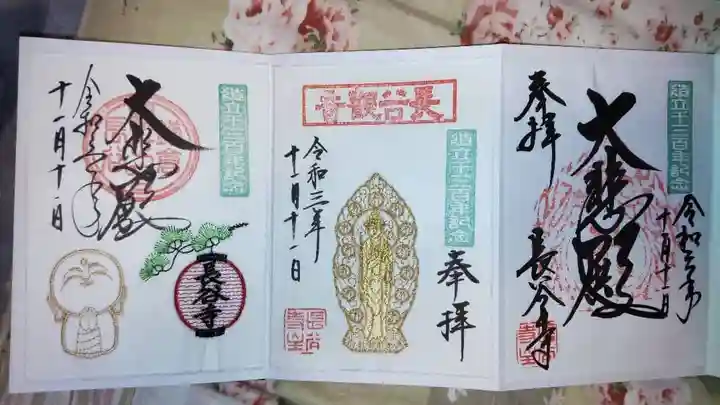 造立千三百年記念
令和三年
十一月十一日
大悲殿
奉拝
長谷寺
長谷觀音
造立千三百年記念
奉拝
令和三年
十一月十一日
造立千三百年記念
大悲殿
令和三年
十一月十一日
長谷寺